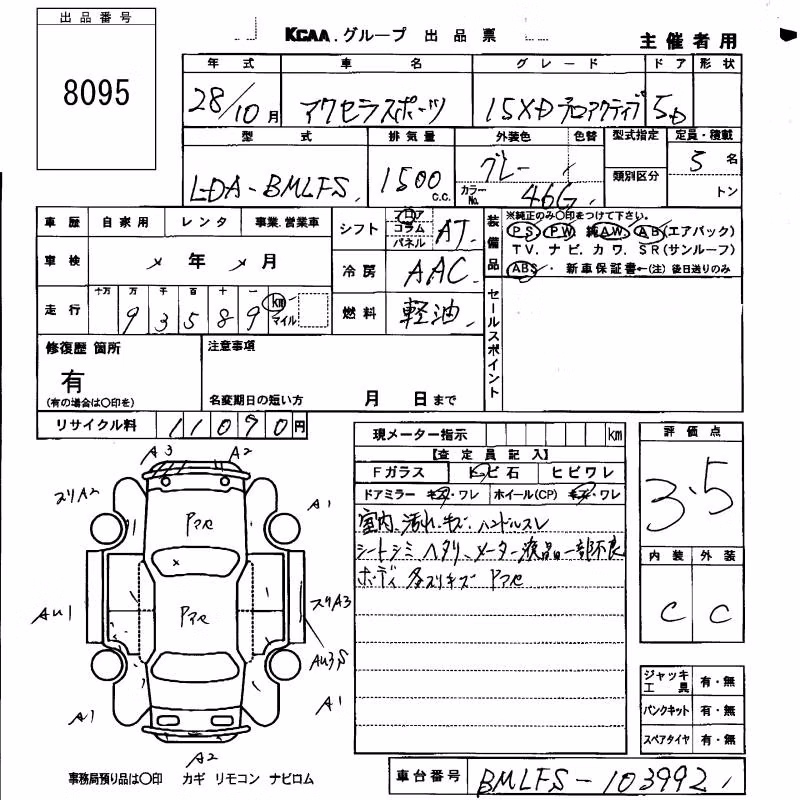 出品番号
8095
KCAA.グループ 出品票
主催者用
年式 車名 グレード ドア 形状
28/10月 アクセラスポーツ 15XD プロアクティブ 5D
型式 排気量 外装色 色替 型式指定 定員・積載
LDA-BMLFS 1500 c.c. グレー カラーNo. 46G 類別区分 5名
トン
車歴 自家用 レンタ 事業.営業車
シフト フロア コラム パネル AT
装備品 ※純正のみ○印をつけて下さい。
PS PW 純AW AB(エアバック)
TV. ナビ. カワ. SR(サンルーフ)
ABS. 新車保証書←(注)後日送りのみ
車検 年 月
冷房 AAC
走行 十万 万 千 百 十 一
93589 km マイル
燃料 軽油
セールスポイント
修復歴 箇所
有
(有の場合は○印を)
注意事項
名変期日の短い方 月 日まで
リサイクル料 11090円
現メーター指示 km
【査定員記入】
Fガラス トビ石 ヒビワレ
ドアミラー キズ・ワレ ホイール(CP) キズ・ワレ
室内、汚れ.キズ.ハンドルスレ
シートシミ ヘタリ、メーター液晶一部不良
ボディ 各スリキズ Pアセ
評価点
3.5
内装 外装
C C
A3 A2
スリA2 A1
Pアセ
Pアセ
AU1 スリA3
AU3,S
A1 A1
A2
ジャッキ工具 有・無
パンクキット 有・無
スペアタイヤ 有・無
事務局預り品は○印 カギ リモコン ナビロム
車台番号 BMLFS-103992